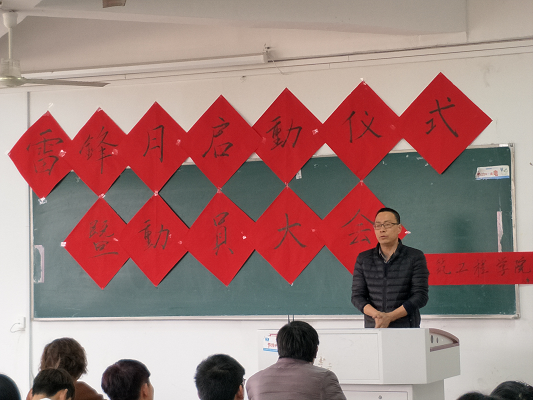 雷鋒月启動仪式
暨動員大会
工程学院